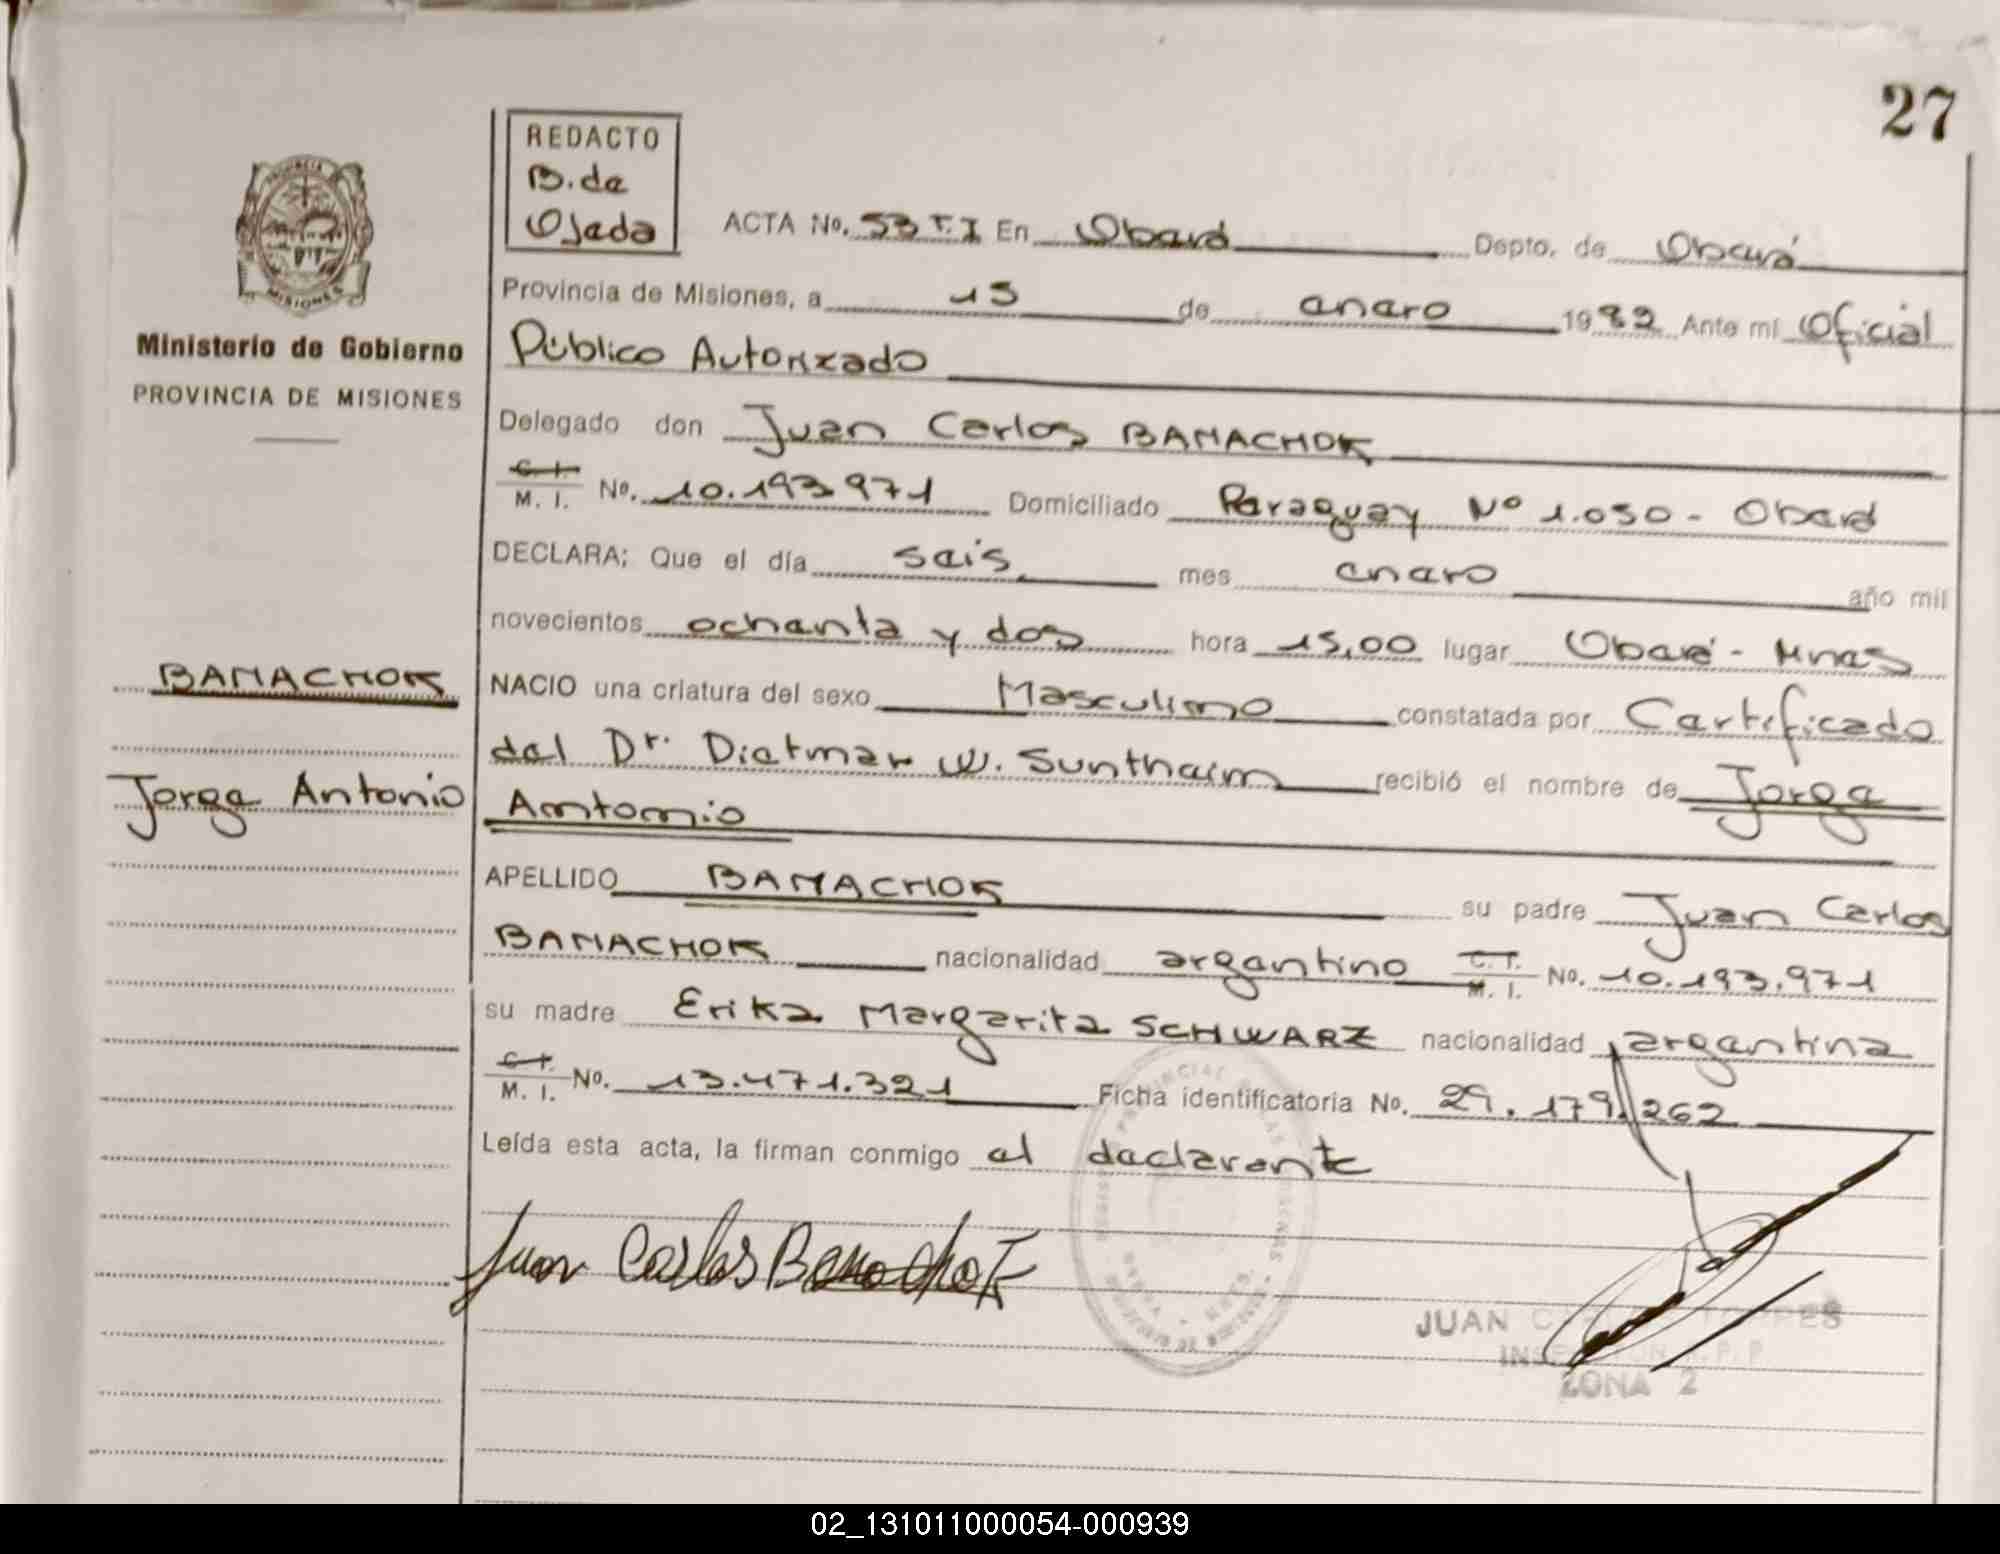 27
REDACTO
B. de
Ojeda
PROVINCIA
MISIONES
Ministerio de Gobierno
PROVINCIA DE MISIONES
ACTA No. 53 T.I En Oberá Depto. de Oberá
Provincia de Misiones, a 15 de enero 1982 Ante mí Oficial
Público Autorizado
Delegado don Juan Carlos BAMACHOK
C. I.
M. I. No. 10.193971 Domiciliado Paraguay Nº 1.050 - Oberá
DECLARA; Que el día seis mes enero año mil
novecientos ochenta y dos hora 15,00 lugar Oberá - Mnes
BAMACHOK
NACIO una criatura del sexo Masculino constatada por Certificado
del Dr. Dietmar W. Suntheim recibió el nombre de Jorge
Jorge Antonio
Antonio
APELLIDO BAMACHOK su padre Juan Carlos
BAMACHOK nacionalidad argentino C. I. M. I. No. 10.193.971
su madre Erika Margarita SCHWARZ nacionalidad argentina
C. I.
M. I. No. 13.471.321 Ficha identificatoria No. 29.179.262
Leída esta acta, la firman conmigo el declarante
Juan Carlos Bamachok
JUAN TORRES
ZONA 2
02_131011000054-000939